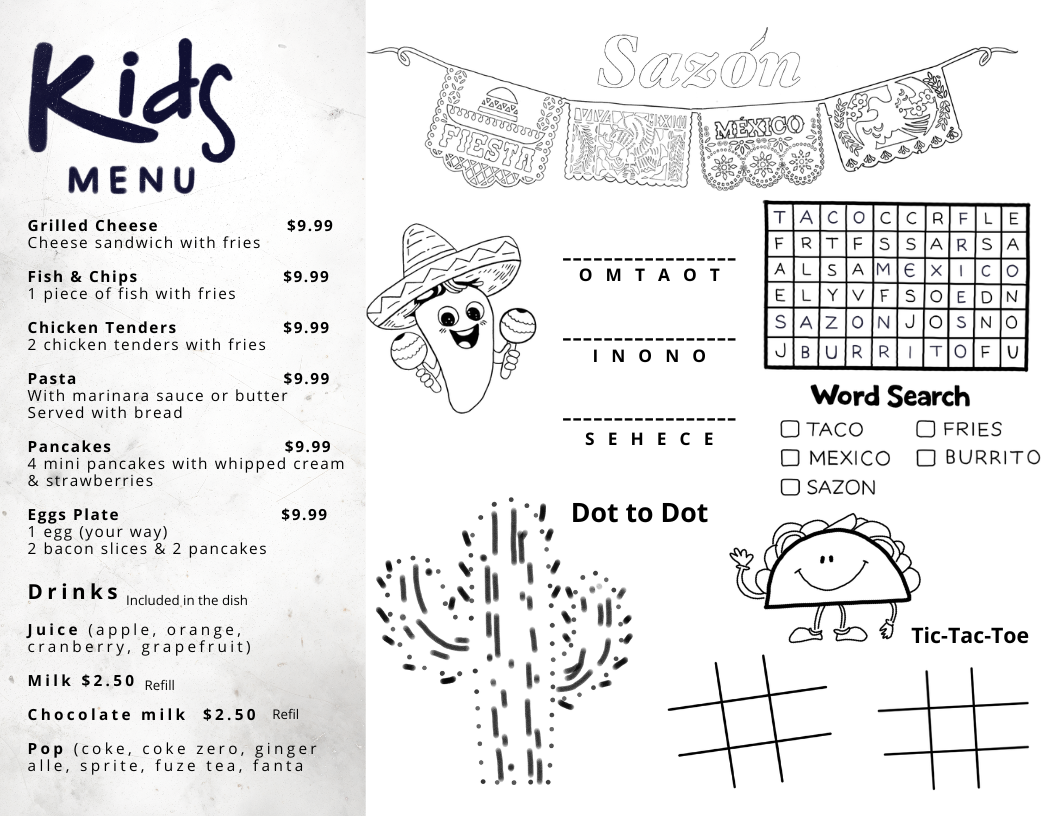 Kids
MENU
Grilled Cheese $9.99
Cheese sandwich with fries
Fish & Chips $9.99
1 piece of fish with fries
Chicken Tenders $9.99
2 chicken tenders with fries
Pasta $9.99
With marinara sauce or butter
Served with bread
Pancakes $9.99
4 mini pancakes with whipped cream
& strawberries
Eggs Plate $9.99
1 egg (your way)
2 bacon slices & 2 pancakes
Drinks Included in the dish
Juice (apple, orange,
cranberry, grapefruit)
Milk $2.50 Refill
Chocolate milk $2.50 Refil
Pop (coke, coke zero, ginger
alle, sprite, fuze tea, fanta
Sazón
FIESTA
MÉXICO
MÉXICO
O M T A O T
I N O N O
S E H E C E
T A C O C C R F L E
F R T F S S A R S A
A L S A M E X I C O
E L Y V F S O E D N
S A Z O N J O S N O
J B U R R I T O F U
Word Search
TACO FRIES
MEXICO BURRITO
SAZON
Dot to Dot
Tic-Tac-Toe